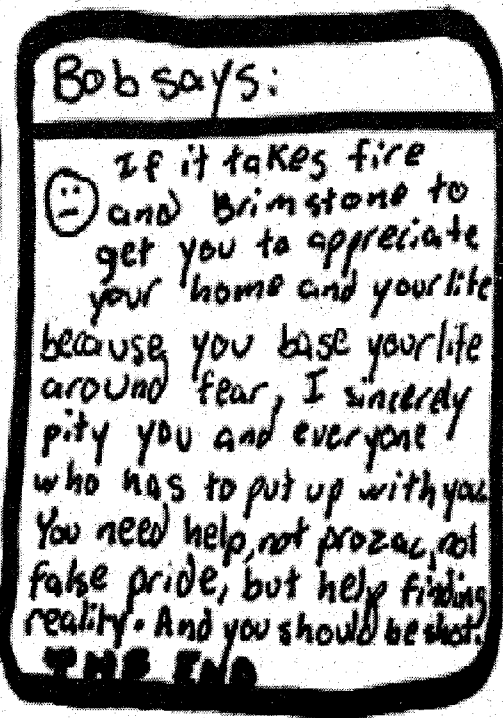 Bob says:
If it takes fire
and Brimstone to
get you to appreciate
your home and your life
because you base your life
around fear, I sincerely
pity you and everyone
who has to put up with you.
You need help, not prozac, not
false pride, but help finding
reality. And you should be shot.
THE END